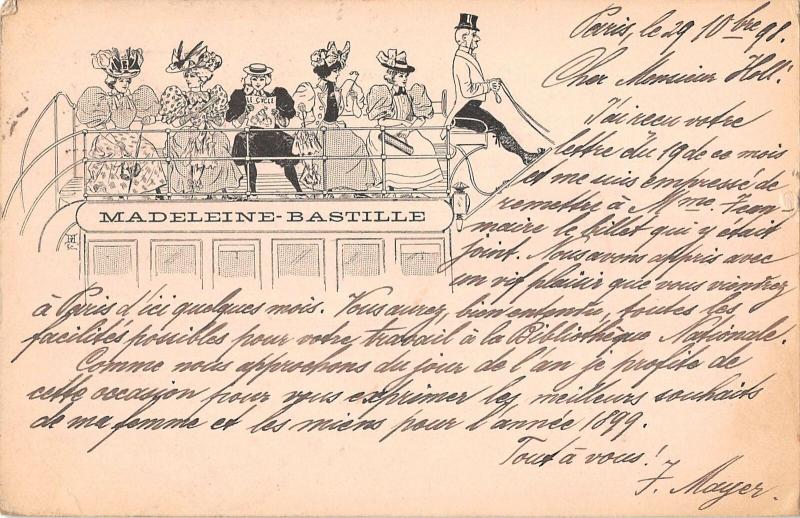 Paris, le 29 10bre 98.
Cher Monsieur Holl!
J'ai reçu votre
lettre du 19 de ce mois
et me suis empressé de
remettre à Mme. Jean-
maire le billet qui y était
joint. Nous avons appris avec
un vif plaisir que vous viendrez
à Paris d'ici quelques mois. Vous aurez, bien entendu, toutes les
facilités possibles pour votre travail à la Bibliothèque Nationale.
Comme nous approchons du jour de l'an je profite de
cette occasion pour vous exprimer les meilleurs souhaits
de ma femme et les miens pour l'année 1899.
Tout à vous!
J. Mayer.
CYCLE
MADELEINE-BASTILLE